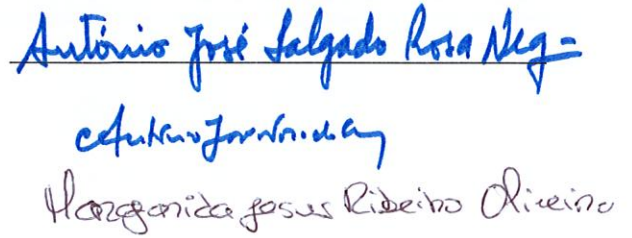 António José Salgado Rosa Neg
António
Margarida Jesus Ribeiro Oliveira